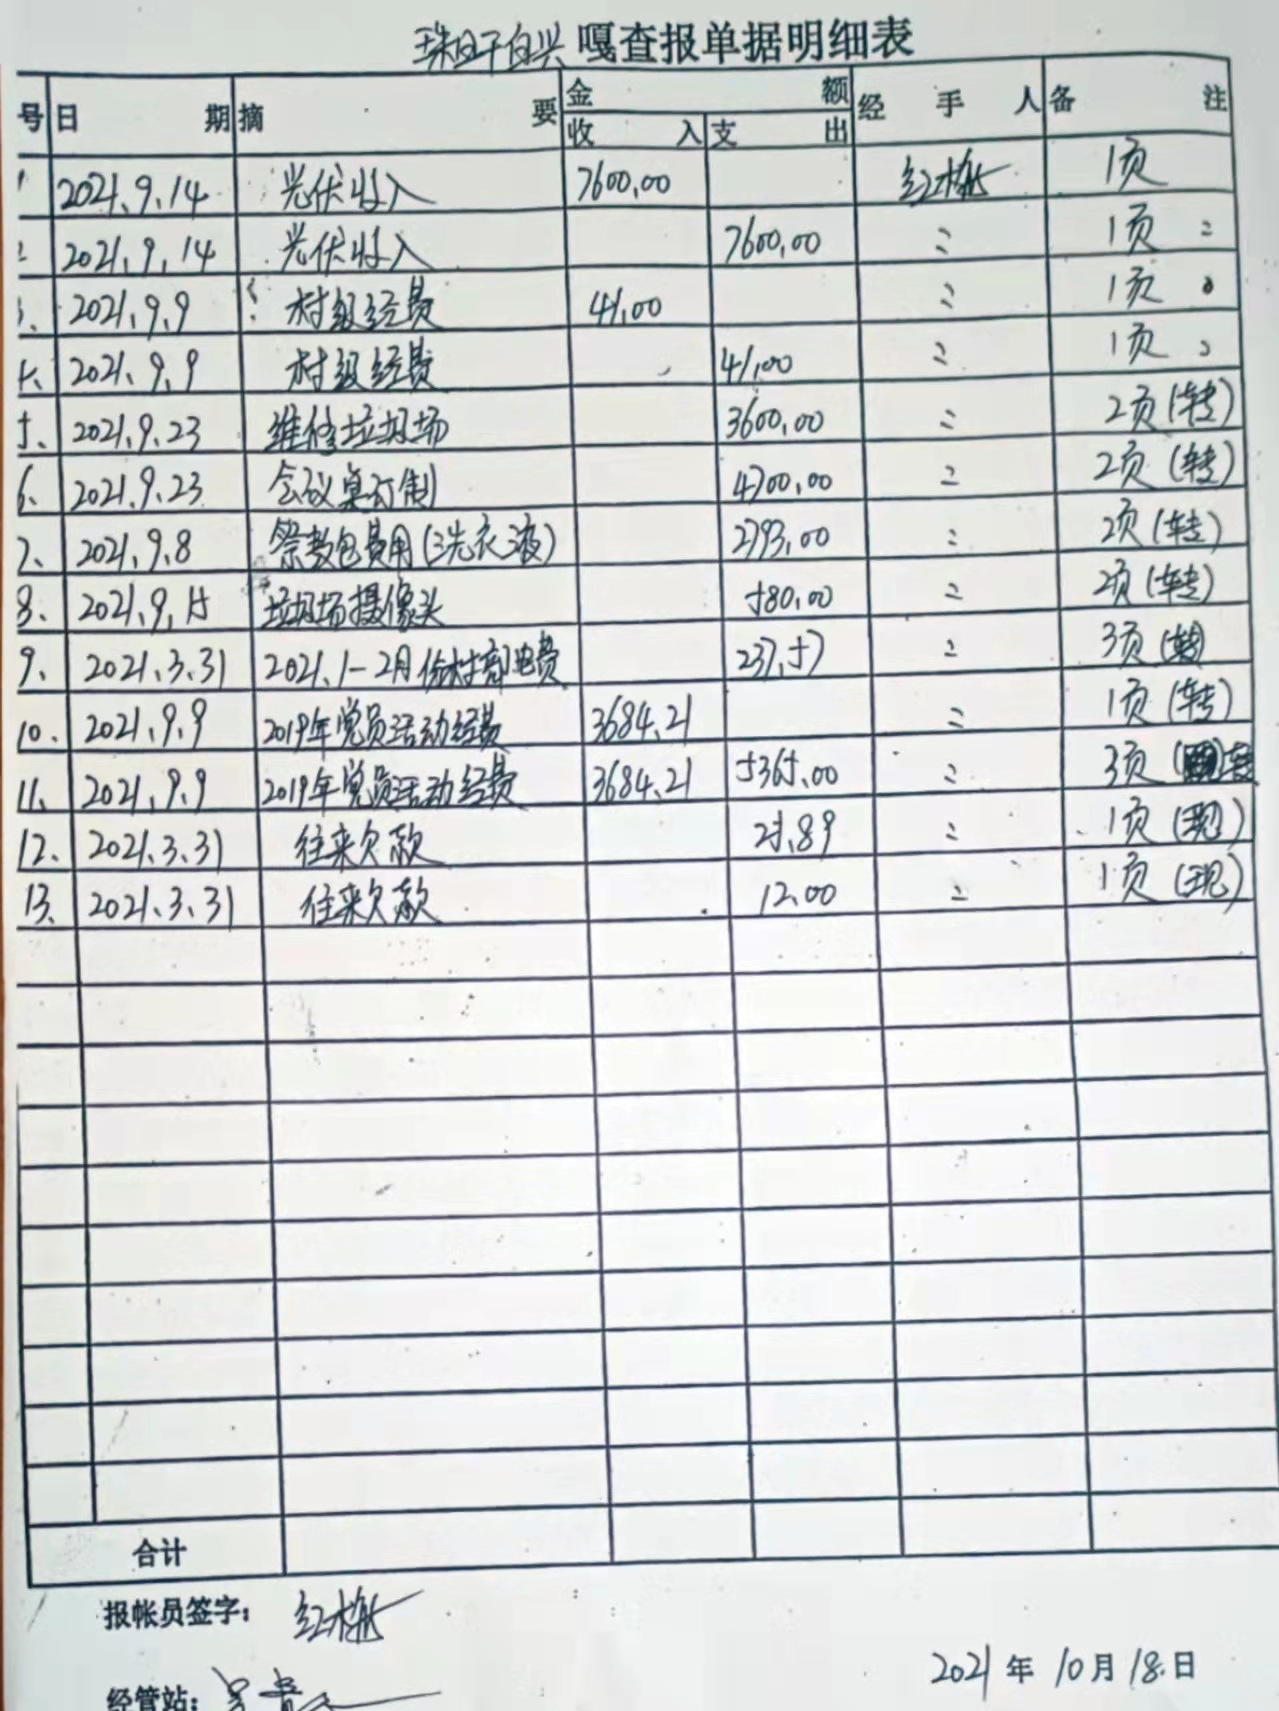 珠日干白兴 嘎查报单据明细表
号 日期 摘要 金额 经手人 备注
收入 支出
1 2021.9.14 光伏收入 7600.00 红梅 1页
2 2021.9.14 光伏收入 7600.00 〃 1页 〃
3、 2021.9.9 村级经费 41.00 〃 1页
4、 2021.9.9 村级经费 41.00 〃 1页 〃
5、 2021.9.23 维修垃圾场 3600.00 〃 2页(转)
6、 2021.9.23 会议桌订制 4700.00 〃 2页(转)
7、 2021.9.8 祭敖包费用(洗衣液) 2793.00 〃 2页(转)
8、 2021.9.15 垃圾场摄像头 580.00 〃 2页(转)
9、 2021.3.31 2021.1-2月份村部电费 237.57 〃 3页(转)
10、 2021.9.9 2019年党员活动经费 3684.21 〃 1页(转)
11、 2021.9.9 2019年党员活动经费 3684.21 5365.00 〃 3页 转
12、 2021.3.31 往来欠款 25.89 〃 1页(现)
13、 2021.3.31 往来欠款 12.00 〃 1页(现)
合计
报帐员签字: 红梅
2021年10月18日
经管站: